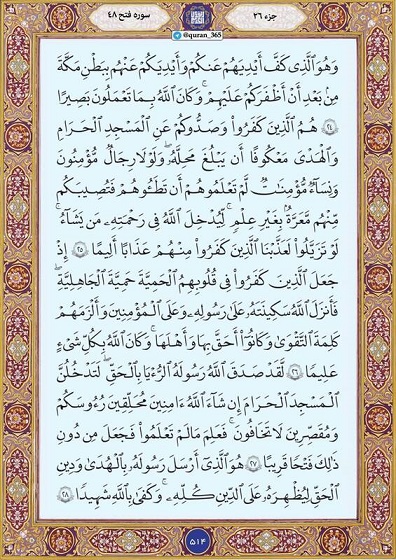 جزء ۲۶
سوره فتح ۴۸
@quran_365
وَهُوَ ٱلَّذِى كَفَّ أَيْدِيَهُمْ عَنكُمْ وَأَيْدِيَكُمْ عَنْهُم بِبَطْنِ مَكَّةَ
مِنۢ بَعْدِ أَنْ أَظْفَرَكُمْ عَلَيْهِمْ ۚ وَكَانَ ٱللَّهُ بِمَا تَعْمَلُونَ بَصِيرًا
۲۴ هُمُ ٱلَّذِينَ كَفَرُوا۟ وَصَدُّوكُمْ عَنِ ٱلْمَسْجِدِ ٱلْحَرَامِ
وَٱلْهَدْىَ مَعْكُوفًا أَن يَبْلُغَ مَحِلَّهُۥ ۚ وَلَوْلَا رِجَالٌ مُّؤْمِنُونَ
وَنِسَآءٌ مُّؤْمِنَـٰتٌ لَّمْ تَعْلَمُوهُمْ أَن تَطَـُٔوهُمْ فَتُصِيبَكُم
مِّنْهُم مَّعَرَّةٌۢ بِغَيْرِ عِلْمٍ ۖ لِّيُدْخِلَ ٱللَّهُ فِى رَحْمَتِهِۦ مَن يَشَآءُ ۚ
لَوْ تَزَيَّلُوا۟ لَعَذَّبْنَا ٱلَّذِينَ كَفَرُوا۟ مِنْهُمْ عَذَابًا أَلِيمًا ۲۵ إِذْ
جَعَلَ ٱلَّذِينَ كَفَرُوا۟ فِى قُلُوبِهِمُ ٱلْحَمِيَّةَ حَمِيَّةَ ٱلْجَـٰهِلِيَّةِ
فَأَنزَلَ ٱللَّهُ سَكِينَتَهُۥ عَلَىٰ رَسُولِهِۦ وَعَلَى ٱلْمُؤْمِنِينَ وَأَلْزَمَهُمْ
كَلِمَةَ ٱلتَّقْوَىٰ وَكَانُوٓا۟ أَحَقَّ بِهَا وَأَهْلَهَا ۚ وَكَانَ ٱللَّهُ بِكُلِّ شَىْءٍ
عَلِيمًا ۲۶ لَّقَدْ صَدَقَ ٱللَّهُ رَسُولَهُ ٱلرُّءْيَا بِٱلْحَقِّ ۖ لَتَدْخُلُنَّ
ٱلْمَسْجِدَ ٱلْحَرَامَ إِن شَآءَ ٱللَّهُ ءَامِنِينَ مُحَلِّقِينَ رُءُوسَكُمْ
وَمُقَصِّرِينَ لَا تَخَافُونَ ۖ فَعَلِمَ مَا لَمْ تَعْلَمُوا۟ فَجَعَلَ مِن دُونِ
ذَٰلِكَ فَتْحًا قَرِيبًا ۲۷ هُوَ ٱلَّذِىٓ أَرْسَلَ رَسُولَهُۥ بِٱلْهُدَىٰ وَدِينِ
ٱلْحَقِّ لِيُظْهِرَهُۥ عَلَى ٱلدِّينِ كُلِّهِۦ ۚ وَكَفَىٰ بِٱللَّهِ شَهِيدًا ۲۸
۵۱۴